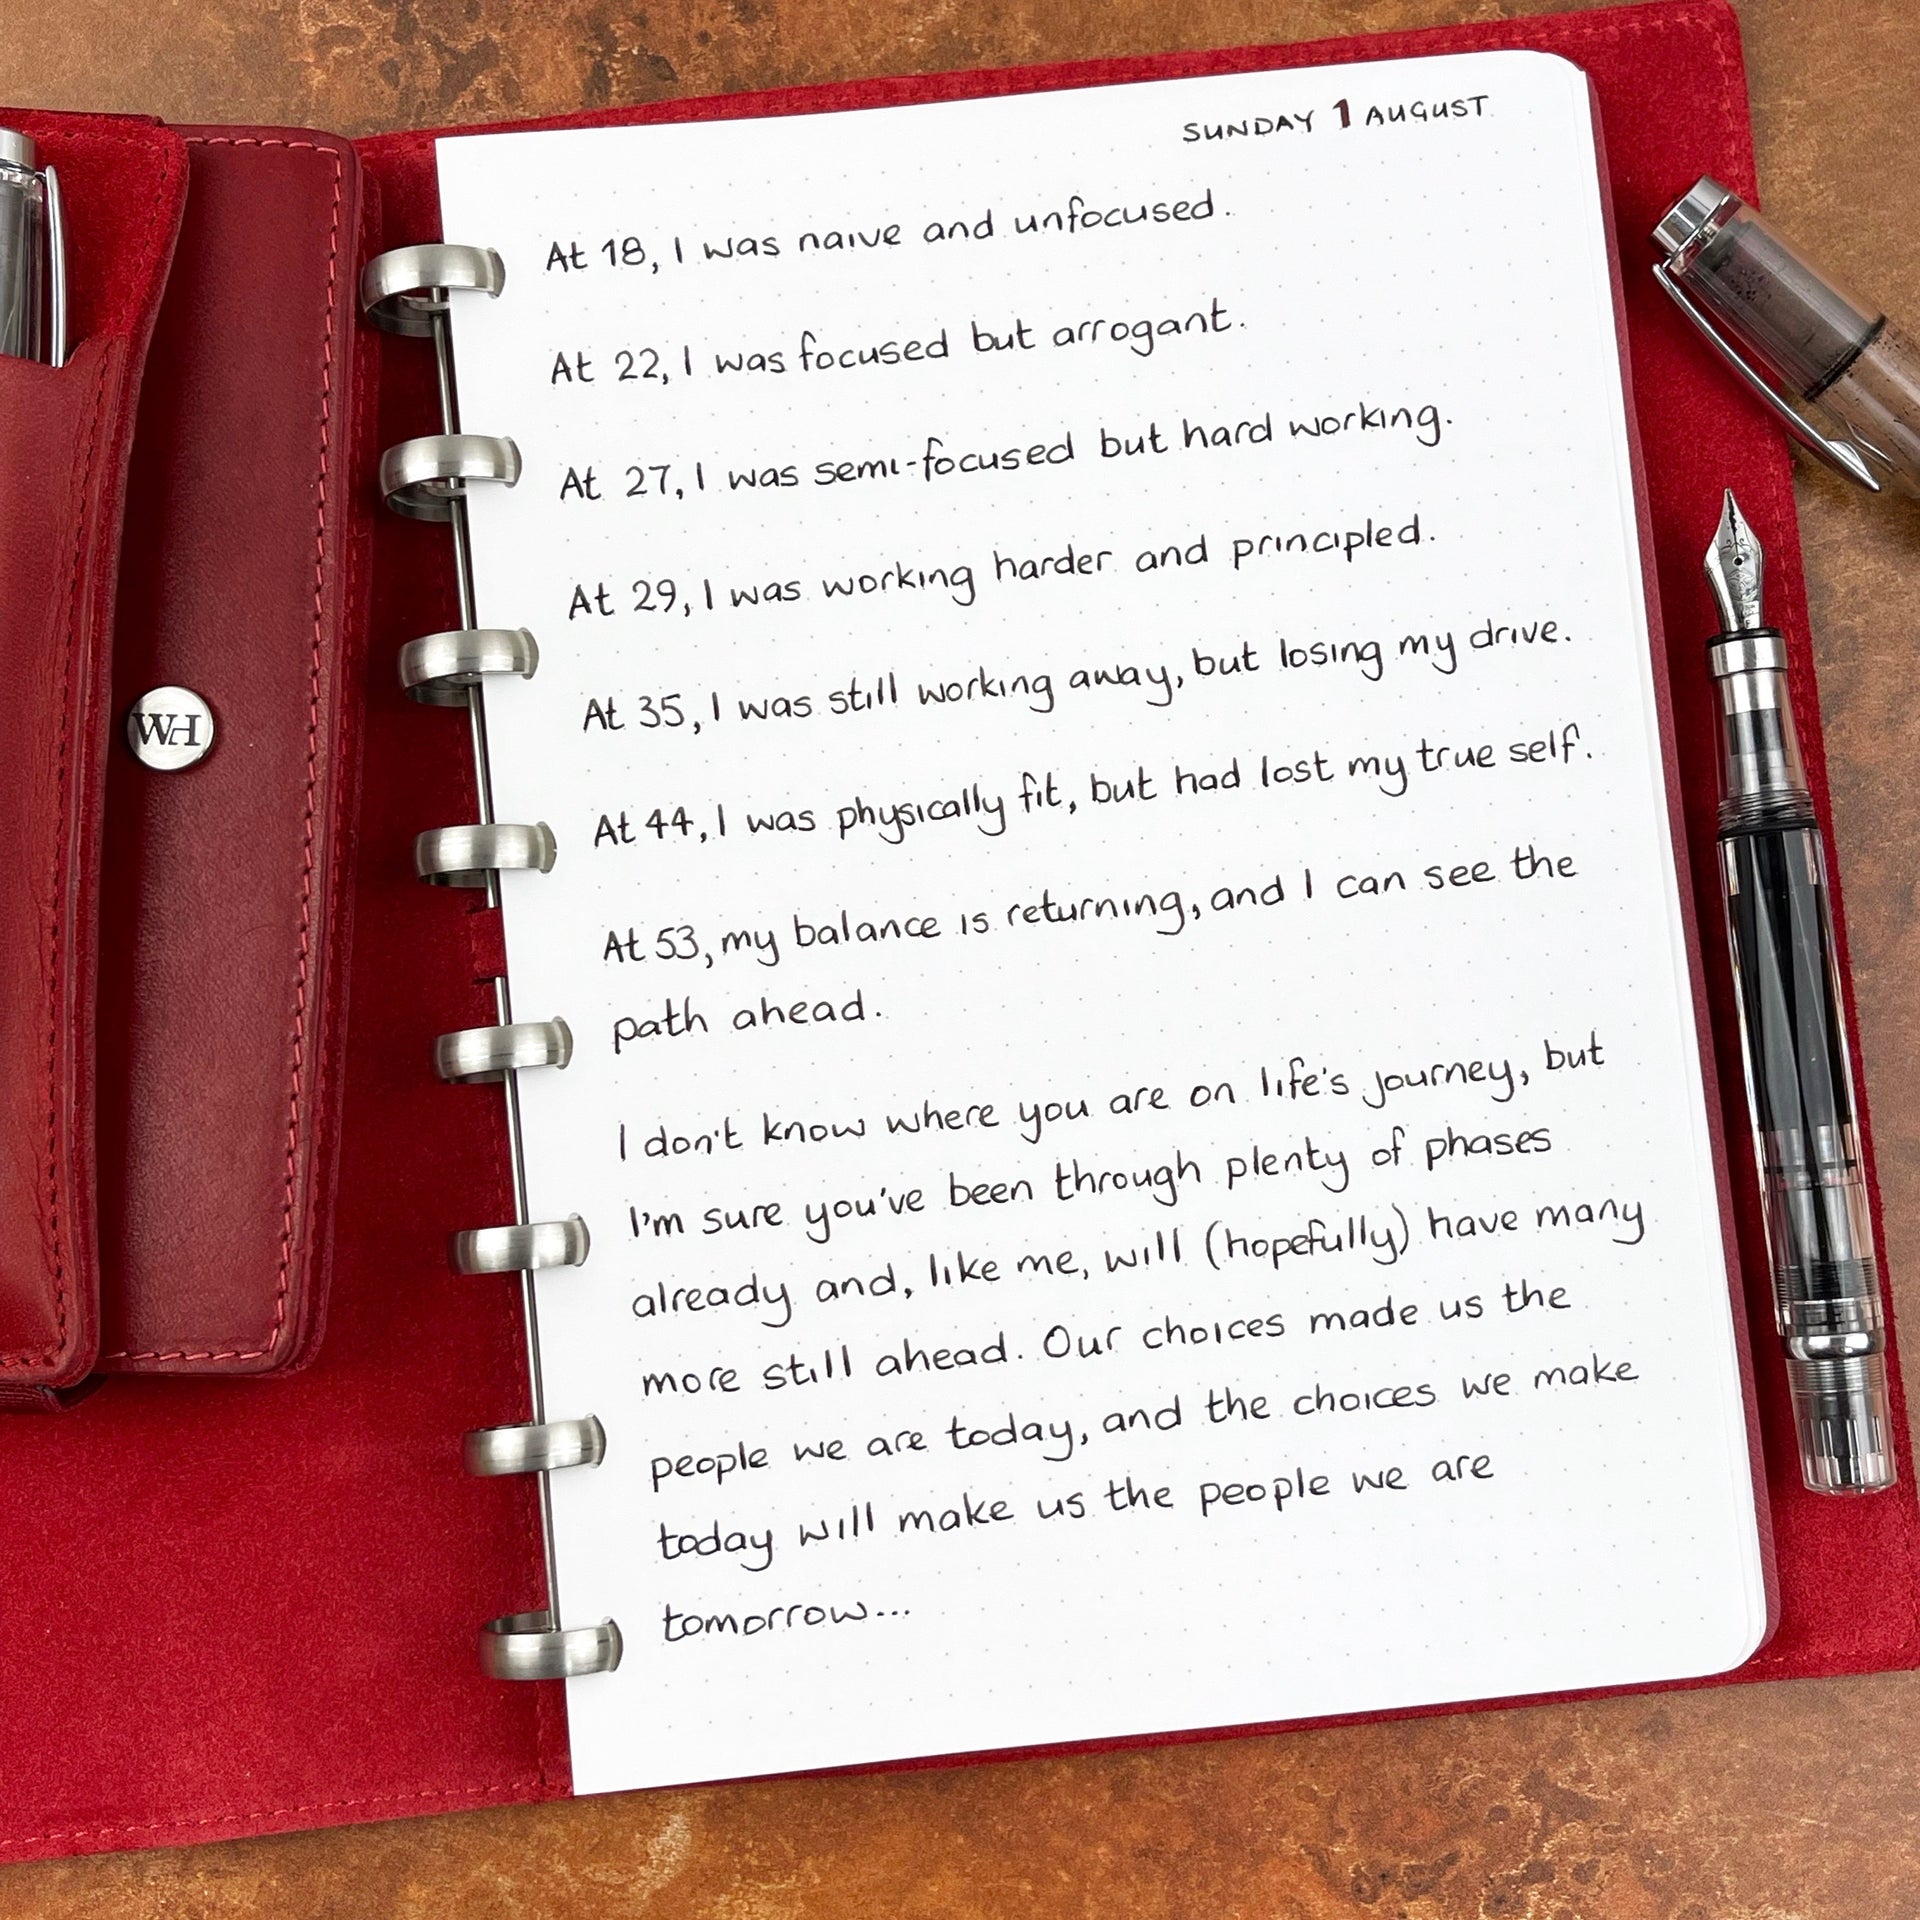 SUNDAY 1 AUGUST
At 18, I was naive and unfocused.
At 22, I was focused but arrogant.
At 27, I was semi-focused but hard working.
At 29, I was working harder and principled.
At 35, I was still working away, but losing my drive.
At 44, I was physically fit, but had lost my true self.
At 53, my balance is returning, and I can see the
path ahead.
I don't know where you are on life's journey, but
I'm sure you've been through plenty of phases
already and, like me, will (hopefully) have many
more still ahead. Our choices made us the
people we are today, and the choices we make
today will make us the people we are
tomorrow...
WH